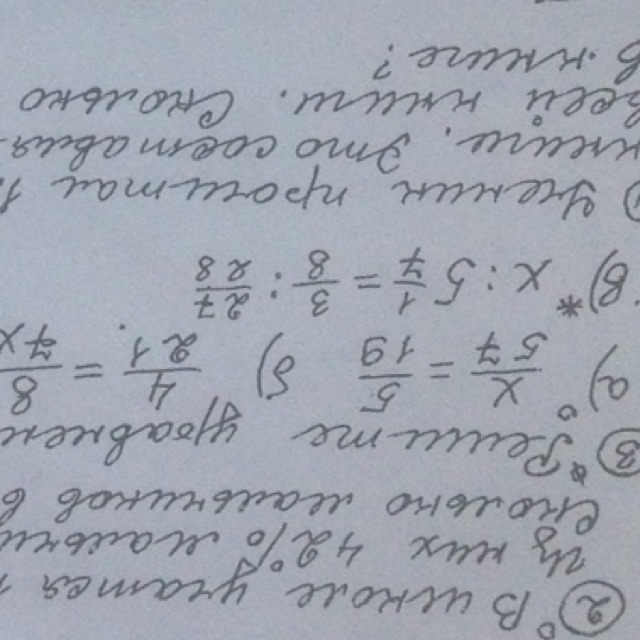 ② В школе учатся
Из них 42% мальчики
сколько мальчиков в
③ Решите уравнен
а) x/57 = 5/19 б) 4/21 = 8/7x
в)* x : 5 1/7 = 3/8 : 27/28
Ученик прочитал
книги. Это составля
всей книги. Сколько
в книге?